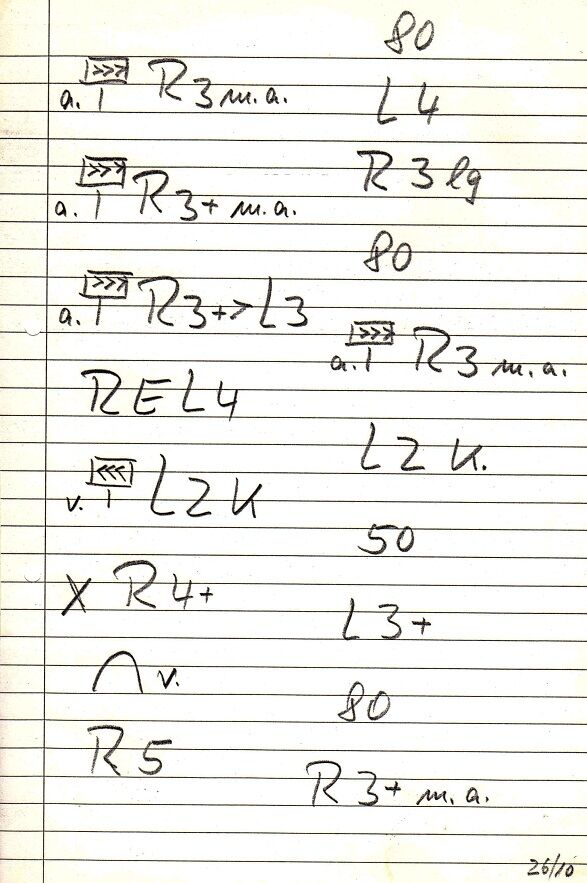 a. >>> R 3 m. a.
a. >>> R 3+ m. a.
a. >>> R 3+ > L 3
R E L 4
v. <<< L 2 K
X R 4+
v.
R 5
80
L 4
R 3 lg
80
a. >>> R 3 m. a.
L 2 K.
50
L 3+
80
R 3+ m. a.
26/10